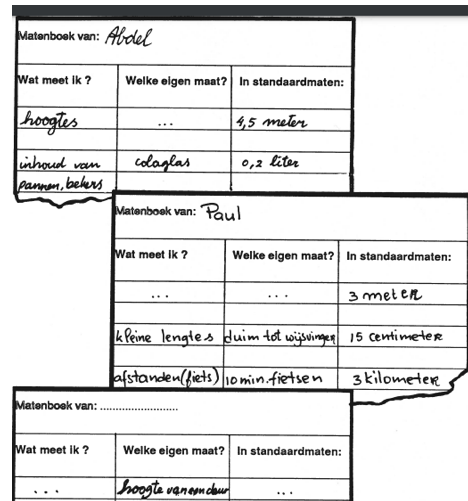 Matenboek van: Abdel
Wat meet ik ? Welke eigen maat? In standaardmaten:
hoogtes ... 4,5 meter
inhoud van colaglas 0,2 liter
pannen, bekers
Matenboek van: Paul
Wat meet ik ? Welke eigen maat? In standaardmaten:
... ... 3 meter
kleine lengtes duim tot wijsvinger 15 centimeter
afstanden (fiets) 10 min. fietsen 3 kilometer
Matenboek van: ..........................
Wat meet ik ? Welke eigen maat? In standaardmaten:
... hoogte van een deur ...